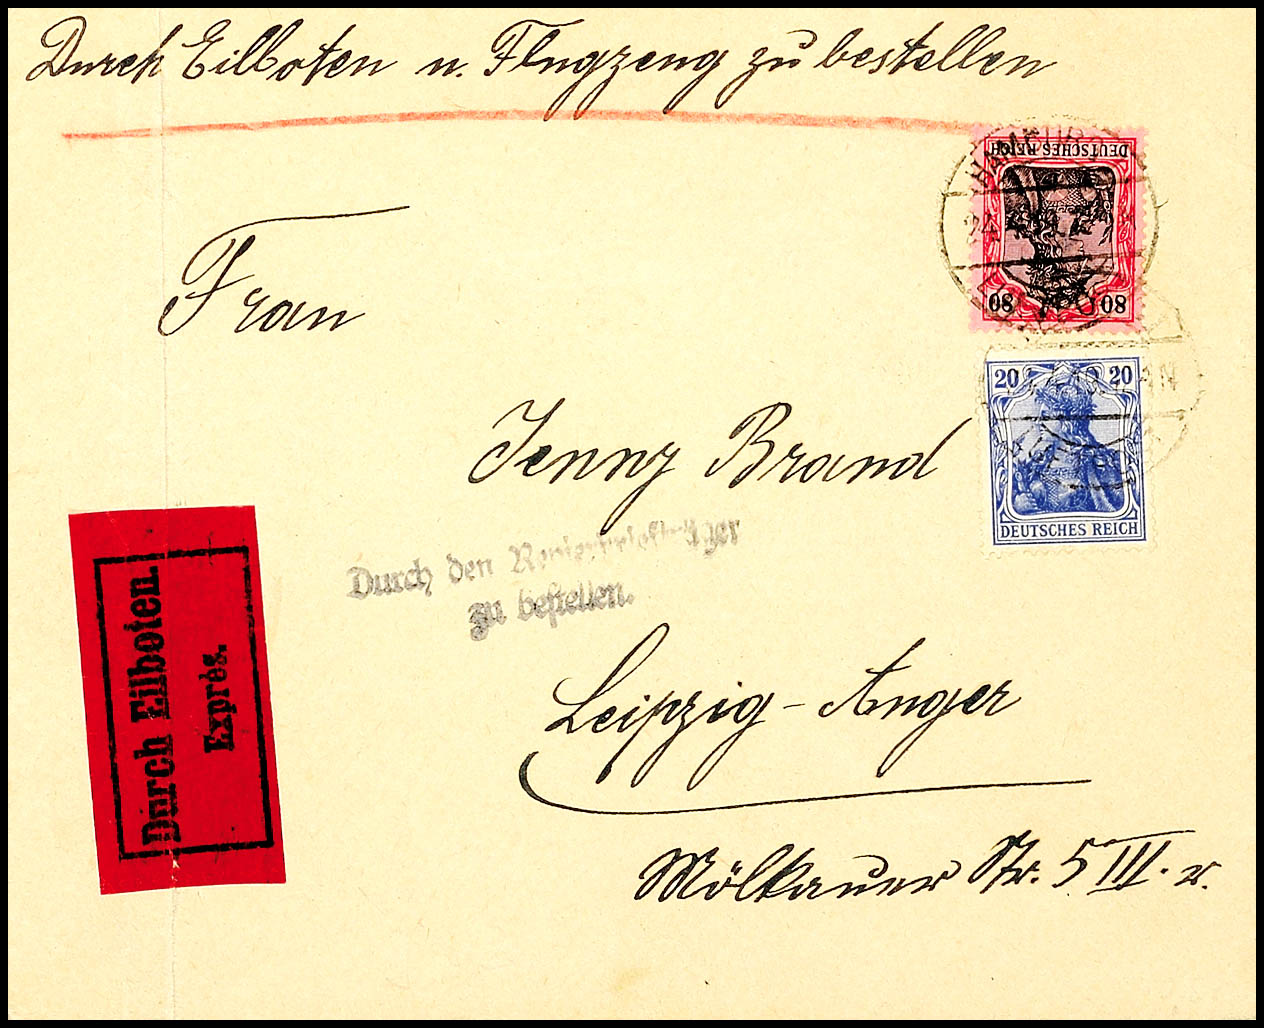 Durch Eilboten u. Flugzeug zu bestellen
DEUTSCHES REICH
80 80
Frau
20 20
DEUTSCHES REICH
Jenny Brand
Durch den Revierbriefträger
zu bestellen.
Durch Eilboten.
Exprès.
Leipzig-Anger
Mölkauer Str. 5 III. r.